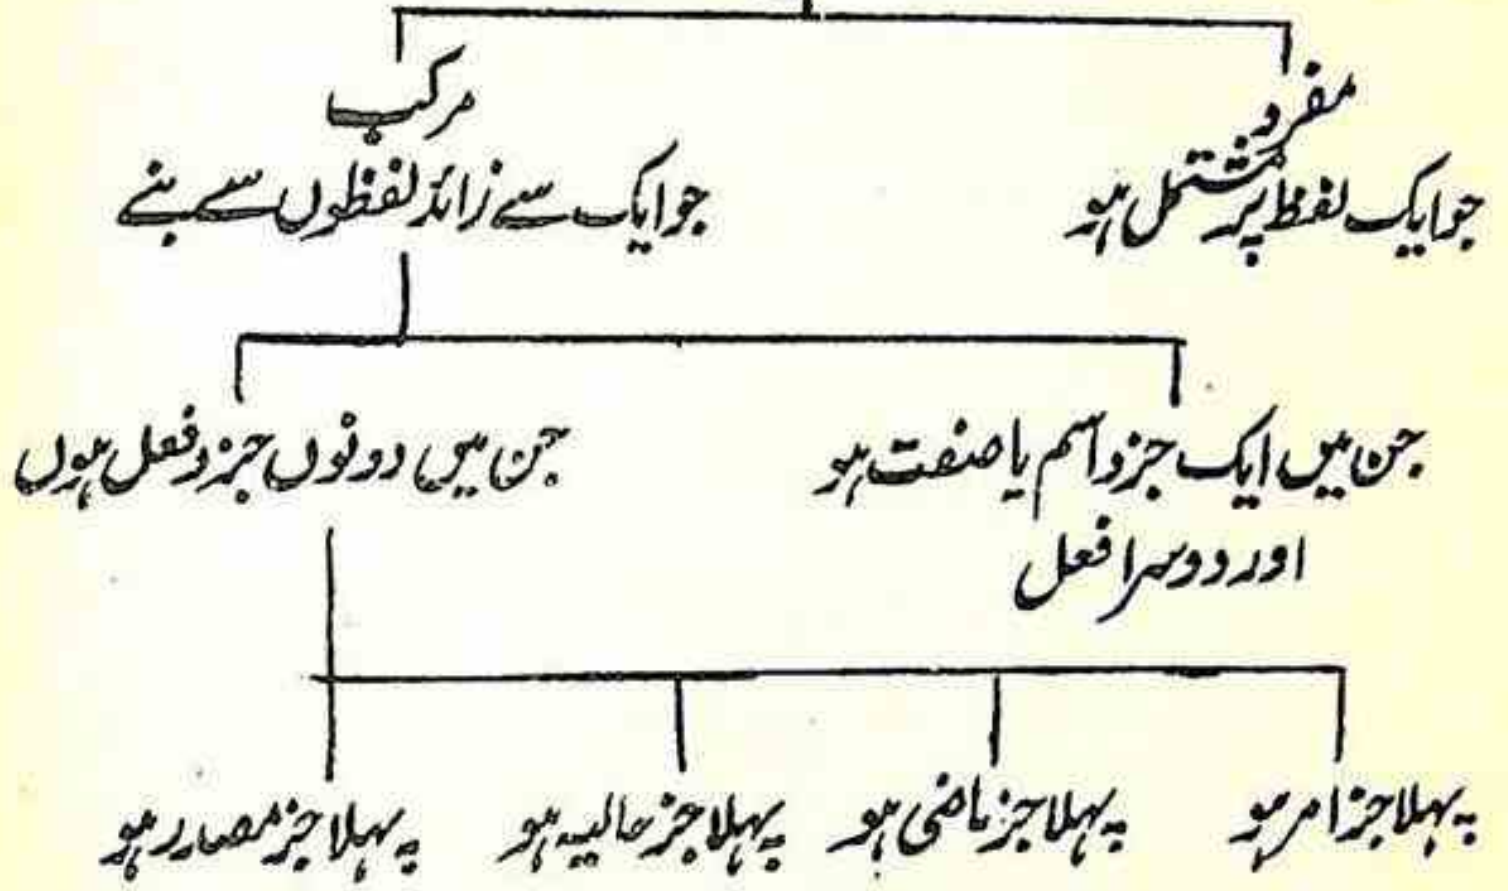 مفرد
جو ایک لفظ پر مشتمل ہو
مرکب
جو ایک سے زائد لفظوں سے بنے
جن میں ایک جزو اسم یا صفت ہو
اور دوسرا فعل
جن میں دونوں جزو فعل ہوں
پہلا جز امر ہو
پہلا جز ماضی ہو
پہلا جز حالیہ ہو
پہلا جز مصدر ہو